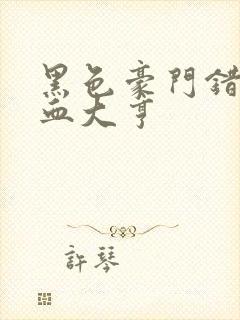 黑色豪門錯
血大亨
許琴